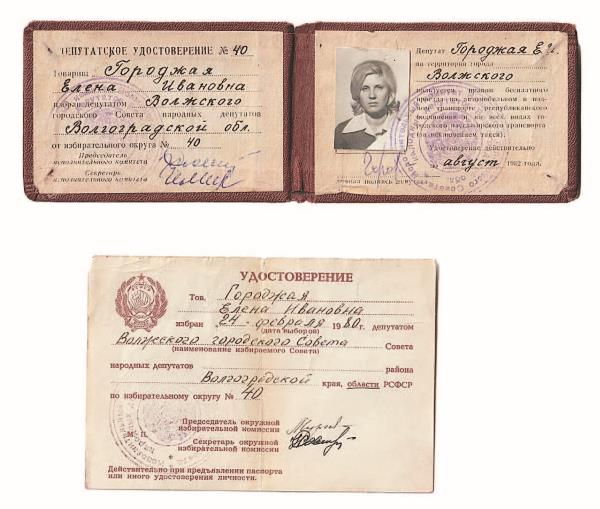 ДЕПУТАТСКОЕ УДОСТОВЕРЕНИЕ № 40
Товарищ Городжая
Елена Ивановна
избран депутатом Волжского
городского Совета народных депутатов
Волгоградской обл.
от избирательного округа № 40
Председатель
исполнительного комитета
Секретарь
исполнительного комитета
Депутат Городжая Е. И.
на территории города
Волжского
пользуется правом бесплатного
проезда на автомобильном и водном
транспорте республиканского
подчинения и на всех видах городского
пассажирского транспорта
(за исключением такси).
Удостоверение действительно
август 1982 года.
личная подпись депутата
УДОСТОВЕРЕНИЕ
Тов. Городжая
Елена Ивановна
избран 24 февраля 1980 г. депутатом
(дата выборов)
Волжского городского Совета Совета
(наименование избираемого Совета)
народных депутатов района
Волгоградской края, области РСФСР
по избирательному округу № 40
Председатель окружной
избирательной комиссии
М. П.
Секретарь окружной
избирательной комиссии
Действительно при предъявлении паспорта
или иного удостоверения личности.